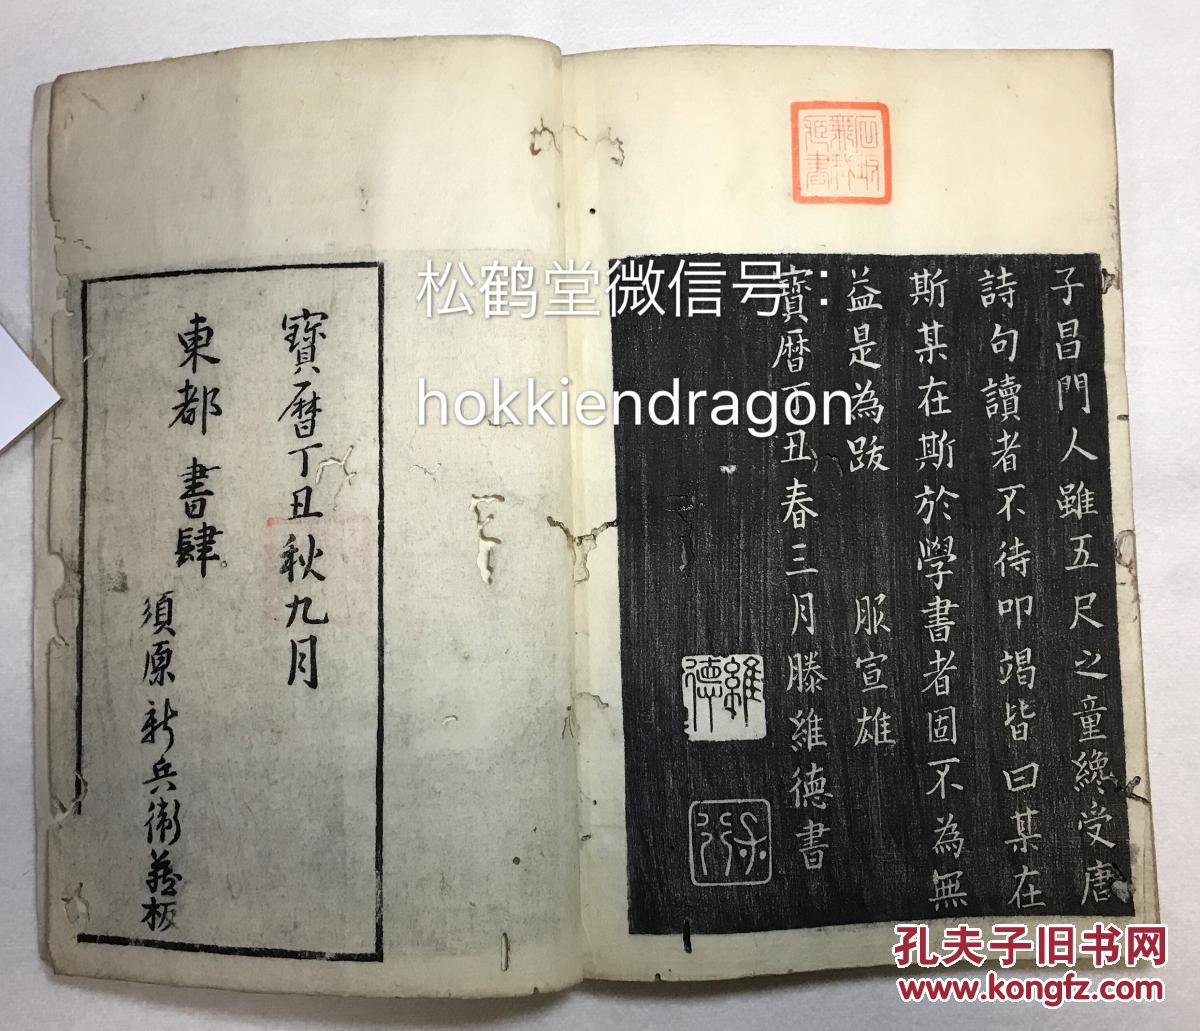 子昌門人雖五尺之童纔受唐
詩句讀者不待叩竭皆曰某在
斯某在斯於學書者固不為無
益是為跋 服宣雄
寶暦丁丑春三月滕維德書
維德
寶暦丁丑秋九月
東都 書肆
須原新兵衛藏板
松鹤堂微信号：
hokkiendragon
孔夫子旧书网
www.kongfz.com